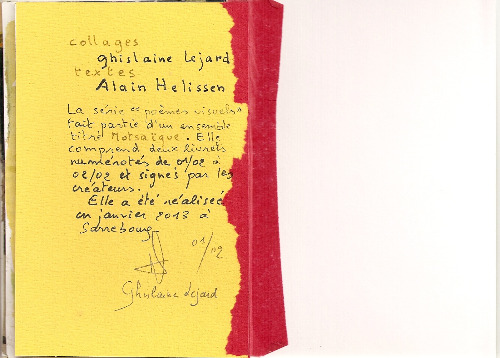 collages
ghislaine Lejard
textes
Alain Helissen
La série "poèmes visuels"
fait partie d'un ensemble
titré Motsaïque. Elle
comprend deux livrets
numérotés de 01/02 à
02/02 et signés par les
créateurs.
Elle a été réalisée
en janvier 2013 à
Sarrebourg
01/02
Ghislaine Lejard